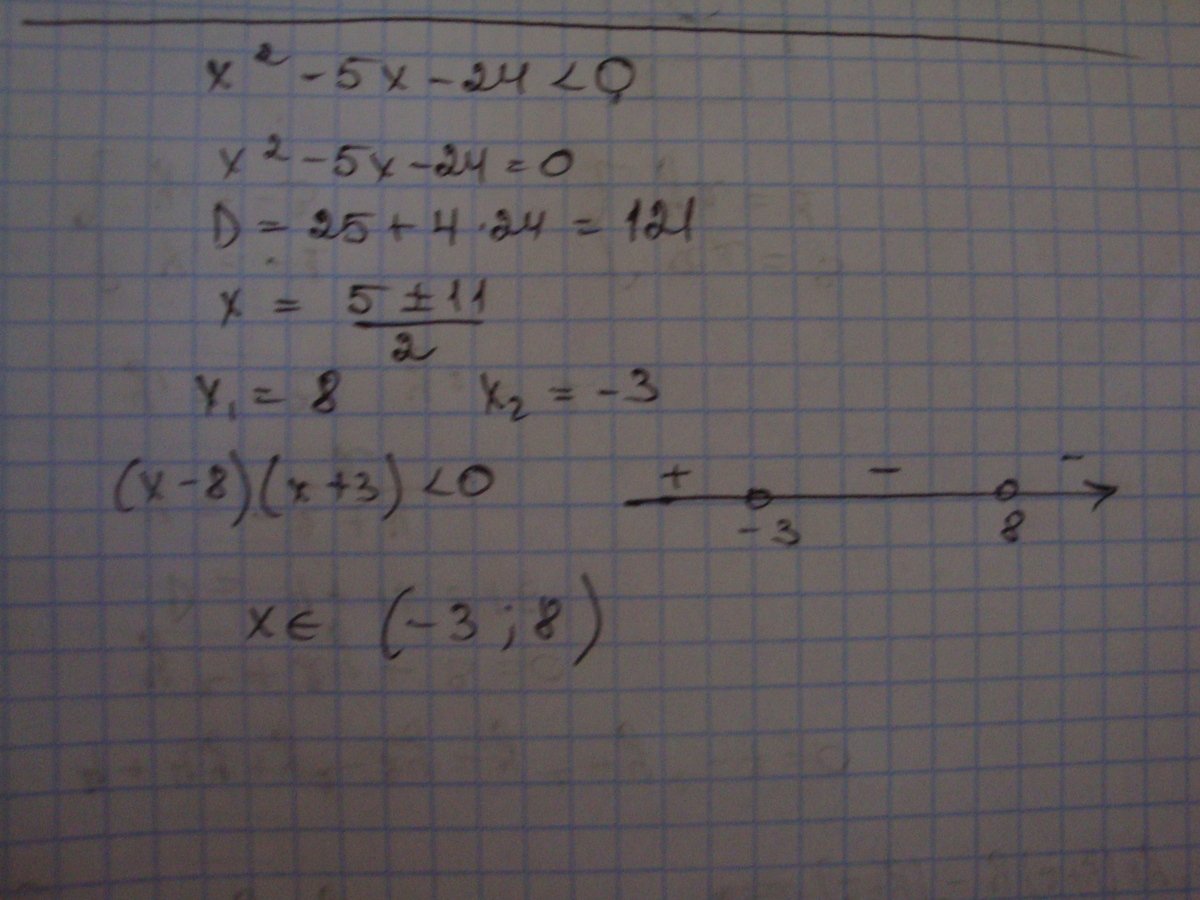 x² - 5x - 24 < 0
x² - 5x - 24 = 0
D = 25 + 4 · 24 = 121
x = (5 ± 11)/2
x₁ = 8 x₂ = -3
(x - 8)(x + 3) < 0
+ - -
-3 8
x ∈ (-3 ; 8)